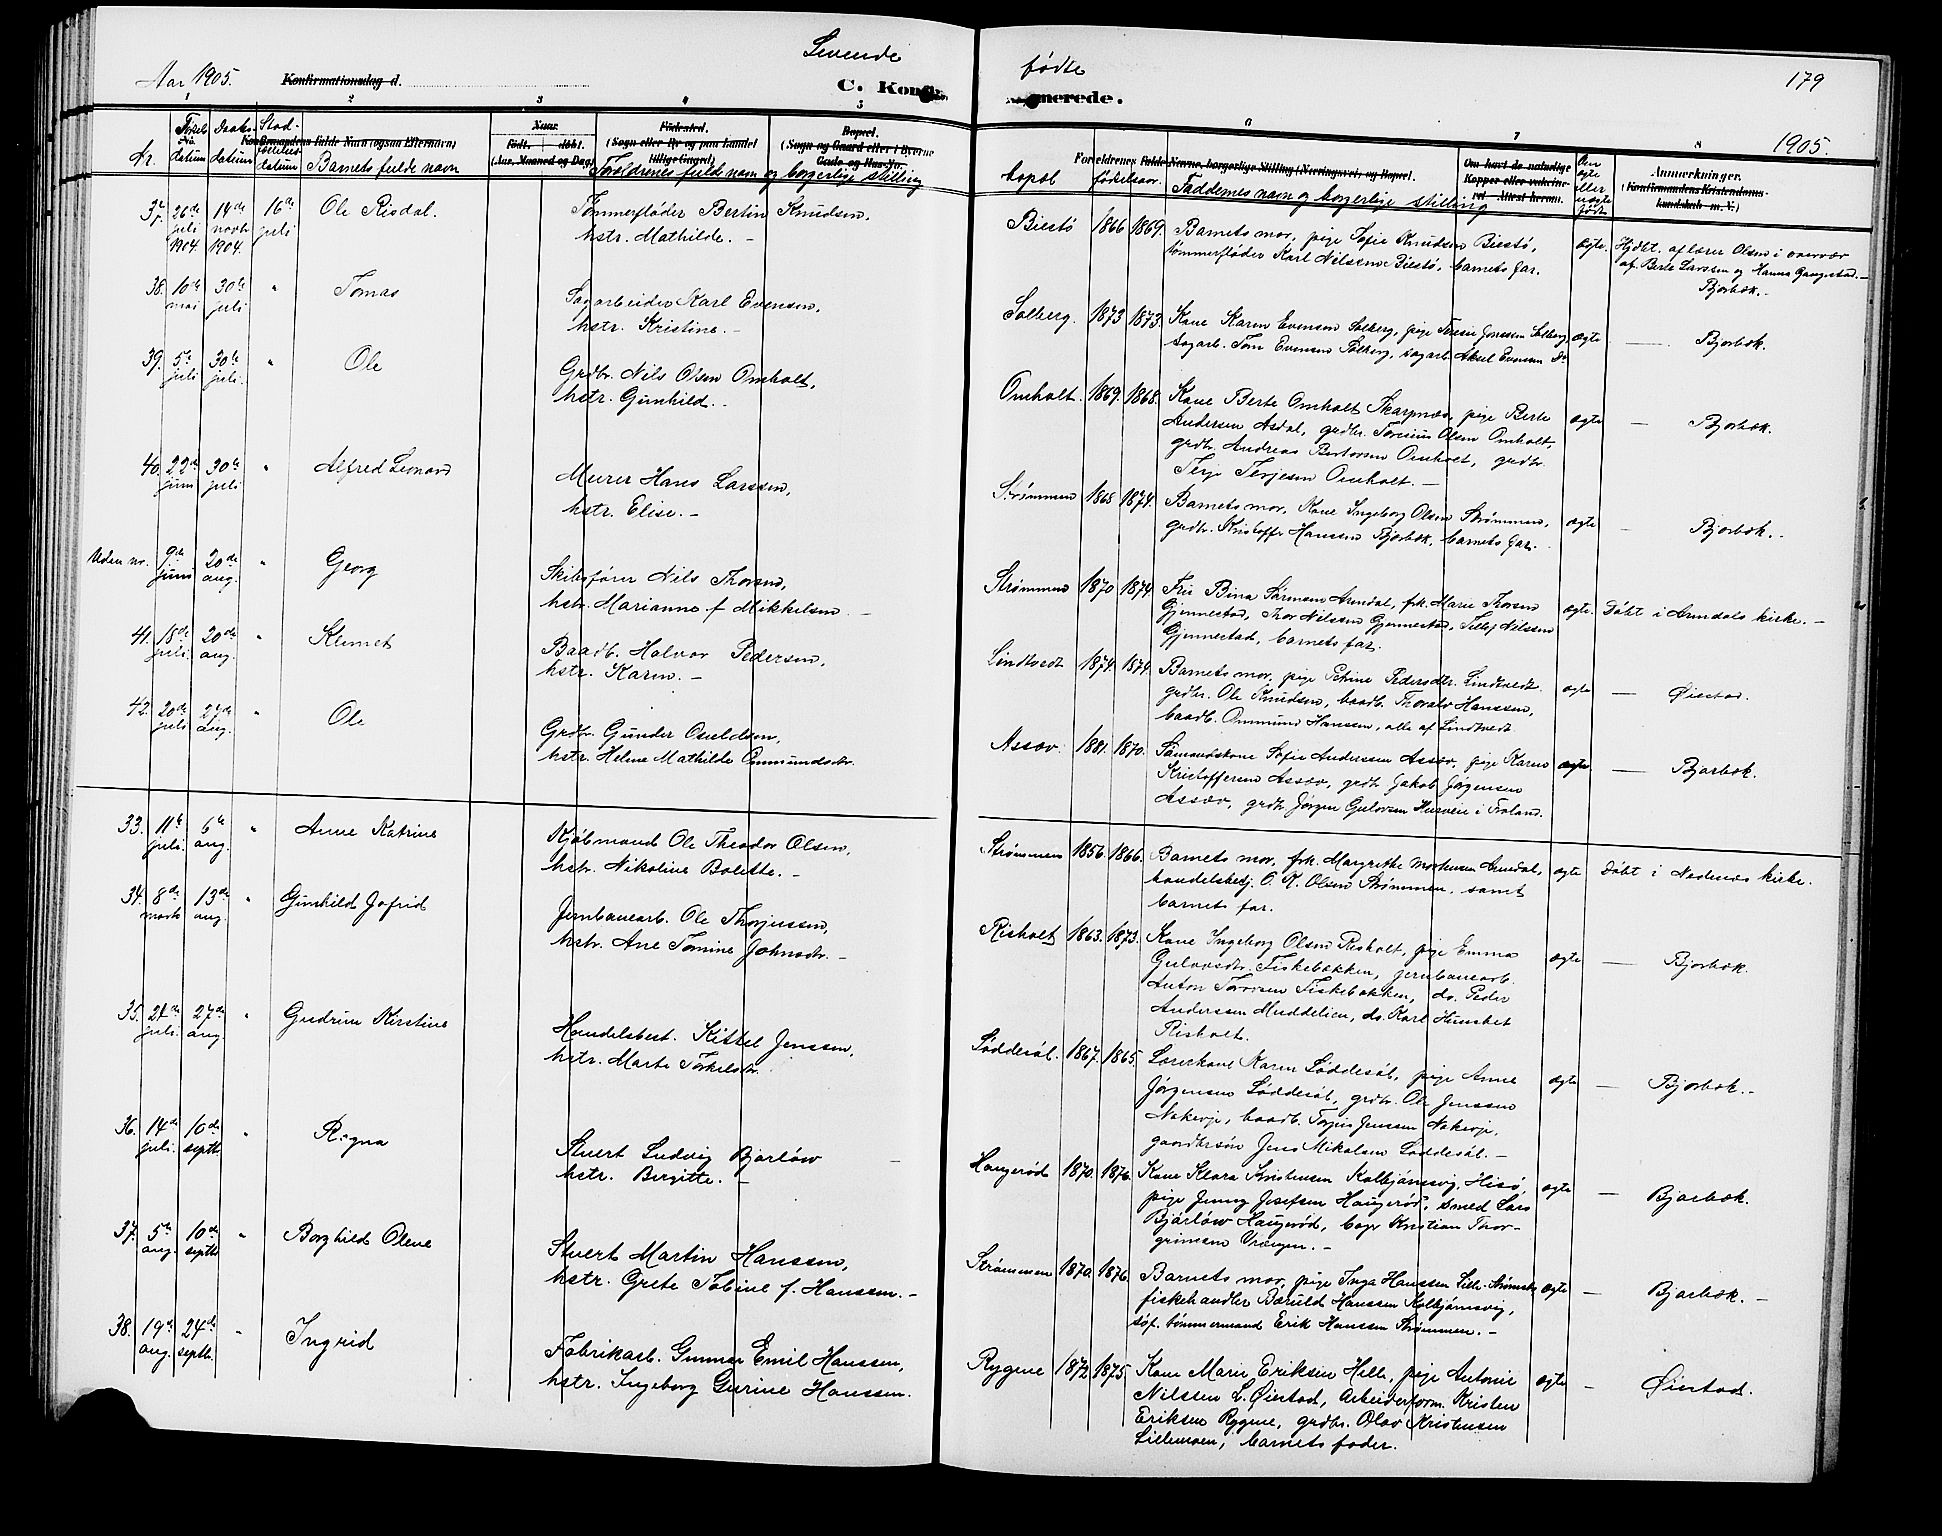 Levende
fødte
179
Aar 1905. Konfirmationsdag d.
C. Konfirmerede.
1905.
1 2 3 4 5 6 7 8
Nr. Fødsels datum Daabs datum Stad- datum Barnets fulde navn
Naar
født. døbt.
(Aar, Maaned og Dag)
Fødested.
(Sogn eller By og paa Landet
tillige Gaard)
Bopæl.
(Sogn og Gaard eller i Byerne
Gade og Hus-Nr.
Foreldrenes fulde navn og borgerlige stilling
bopæl
Forældrenes fulde Navne, borgerlige Stilling (Næringsvei) og Bopæl.
fødselsaar.
Faddernes navn og borgerlige stilling
Om havt de naturlige
Kopper eller vaccine-
ret. Attest herom.
Om
ægte
eller
uægte
født
Anmerkninger.
(Konfirmandens Kristendoms-
kundskab m. V.)
37. 26de juli 1904 14de novbr 1904. 16de juli Ole Risdal.
Tømmerfløder Bertin Knudsen,
hstr. Mathilde. –
Biestø 1866 1869. Barnets mor, pige Sofie Knudsen Biestø,
tømmerfløder Karl Nilsen Biestø, barnets far.
ægte. Hjdbt. af lærer Olsen i overvær
af Berte Larssen og Hanna Gaugstad. –
Bjorbæk. –
38. 16de mai 30te juli " Tomas
Sagarbeider Karl Evensen,
hstr. Kristine. –
Solberg. 1873 1873. Kone Karen Evensen Solberg, pige Terese Jenssen Solberg,
sagarb. Tom Evensen Solberg, sagarb. Aksel Evensen do
ægte — Bjorbæk.
39. 5te juli 30te juli. " Ole
Grdbr. Nils Olsen Omholt,
hstr. Gunhild. –
Omholt. 1869. 1868. Kone Berte Omholt Skarpnæs, pige Berte
Andersen Asdal, grdbr. Terenius Olsen Omholt,
grdbr. Andreas Bertersen Omholt, grdbr.
Terje Terjesen Omholt. –
ægte — Bjorbæk.
40. 22de juni 30te juli " Alfred Leonard
Murer Hans Larssen,
hstr. Elise. –
Strømmen 1868 1874. Barnets mor, Kone Ingeborg Olsen Strømmen,
grdbr. Kristoffer Hanssen Bjorbæk, barnets far.
ægte — Bjorbæk. –
Uden nr. 9de juni 20de aug. " Georg
Skibsfører Nils Thorsen,
hstr. Marianne f. Mikkelsen. –
Strømmen 1870 1874. Fru Bina Sørensen Arendal, frk. Marie Thorsen
Gjennestad, Thor Nilssen Gjennestad, Tellef Nilssen
Gjennestad, barnets far.
ægte. Døbt i Arendals kirke. –
41. 18de juli. 20de aug. " Klemet
Baadb. Halvor Pedersen,
hstr. Karen. –
Lindtvedt 1874. 1874. Barnets mor, pige Petrine Pedersdtr. Lindtvedt.
grdbr. Ole Knudsen, baadb. Thorald Hanssen,
baadb. Ommund Hanssen, alle af Lindtvedt.
ægte — Øiestad.
42. 20de juli 27de aug. " Ole
Grdbr. Gunder Osuldsen,
hstr. Helene Mathilde Ommundsdtr.
Assæv. 1881. 1870. Sømandskone Sofie Anderssen Assæv, pige Karen
Kristoffersen Assæv, grdbr. Jakob Jørgensen
Assæv, grdbr. Jørgen Gulovsen Hurveie i Froland.
ægte. — Bjorbæk.
33. 11te juli. 6te aug. " Anne Katrine
Kjøbmand Ole Theodor Olsen,
hstr. Nikoline Bolette. –
Strømmen 1856. 1866. Barnets mor, frk. Margrethe Mortensen Arendal,
handelsbetj. O. N. Olsen Strømmen, samt
barnets far.
ægte Døbt i Nedenæs kirke.
34. 8de marts 13de aug. " Gunhild Jofrid
Jernbanearb. Ole Thorjussen,
hstr. Ane Tomine Johnsdtr. –
Risholt 1863. 1873. Kone Ingeborg Olsen Risholt, pige Emma
Gulovsdtr. Fiskebækken, jernbanearb.
Anton Torssen Fiskebækken, do. Peder
Anderssen Muddelien, do. Karl
Risholt.
ægte — Bjorbæk.
35. 21de juli. 27de aug. " Gudrun Kirstine
Handelsbest. Kittel Jenssen,
hstr. Marte Torkelsdtr.
Løddesøl. 1867. 1865. Lærerkone Karen Løddesøl, pige Anne
Jørgensen Løddesøl, grdbr. Ole Jenssen
Nakevje, baadb. Torjus Jenssen Nakevje,
gaardbrsøn Jens Mikalsen Løddesøl. –
ægte — Bjorbæk. –
36. 14de juli. 10de septbr. " Ragna
Stuert Ludvig Bjørløw –
hstr. Bergitte. –
Haugerød 1870. 1876. Kone Klara Kristensen Kolbjørnsvig, Hisø,
pige Jenny Josefsen Haugerød, smed Lars
Bjørløw Haugerød, bager Kristian Thor-
grimsen Vrængen. –
ægte — Bjorbæk.
37. 5te aug. 10de septbr. " Borghild Olene
Stuert Martin Hanssen,
hstr. Grete Tobine f. Hanssen. –
Strømmen 1870. 1876. Barnets mor, pige Inga Hanssen Lille-Strømmen,
fiskehandler Børuld Hanssen Kolbjørnsvig,
søf. tømmermand Erik Hanssen Strømmen. –
ægte — Bjorbæk. –
38. 19de aug. 24de septbr. " Ingrid
Fabrikarb. Gunnar Emil Hanssen,
hstr. Ingeborg Gurine Hanssen.
Rygene 1872 1875. Kone Marie Eriksen Helle, pige Antonie
Nilssen L. Øiestad, Arbeiderform. Kristen
Eriksen Rygene, grdbr. Olav Kristensen
Lillemoen, barnets fader.
ægte — Øiestad.